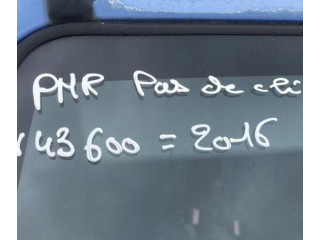 PMR Pas de cli
43600 = 2016